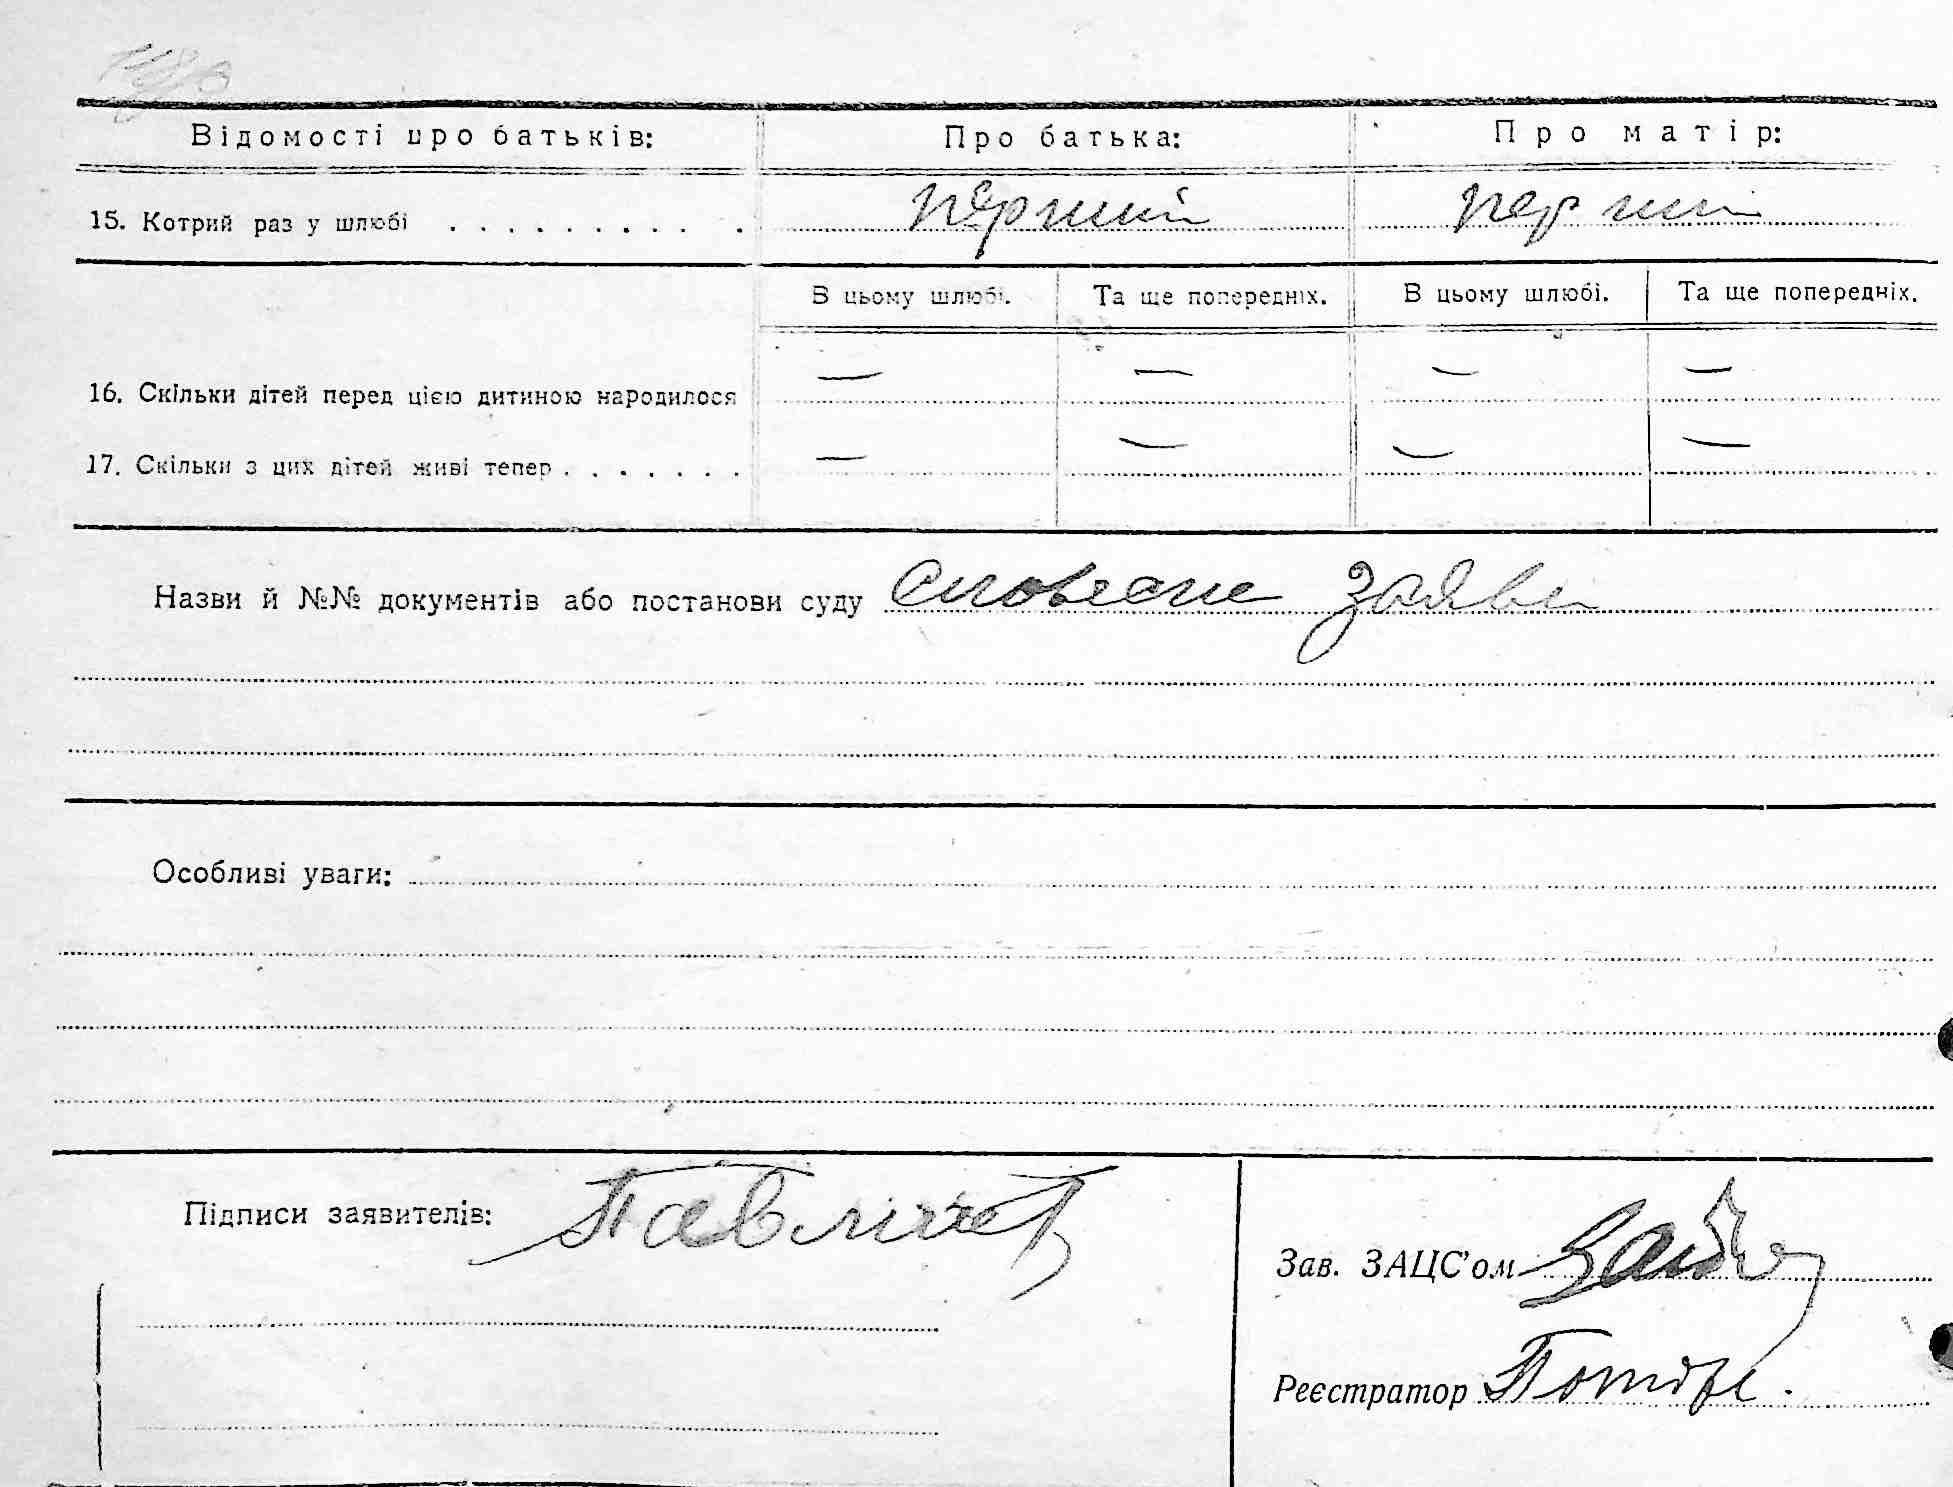 Відомості про батьків: Про батька: Про матір:
15. Котрий раз у шлюбі . . . . . . . . . . перший перший
В цьому шлюбі. Та ще попередніх. В цьому шлюбі. Та ще попередніх.
16. Скільки дітей перед цією дитиною народилося — — — —
17. Скільки з цих дітей живі тепер . . . . . . . — — — —
Назви й №№ документів або постанови суду словесне заява
Особливі уваги:
Підписи заявителів:
Зав. ЗАЦС'ом
Реєстратор